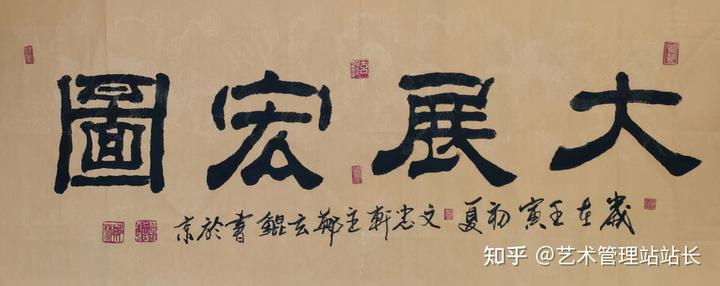 大展宏圖
歲在壬寅初夏文忠軒主鄭玄鯤書於京
知乎 @艺术管理站站长